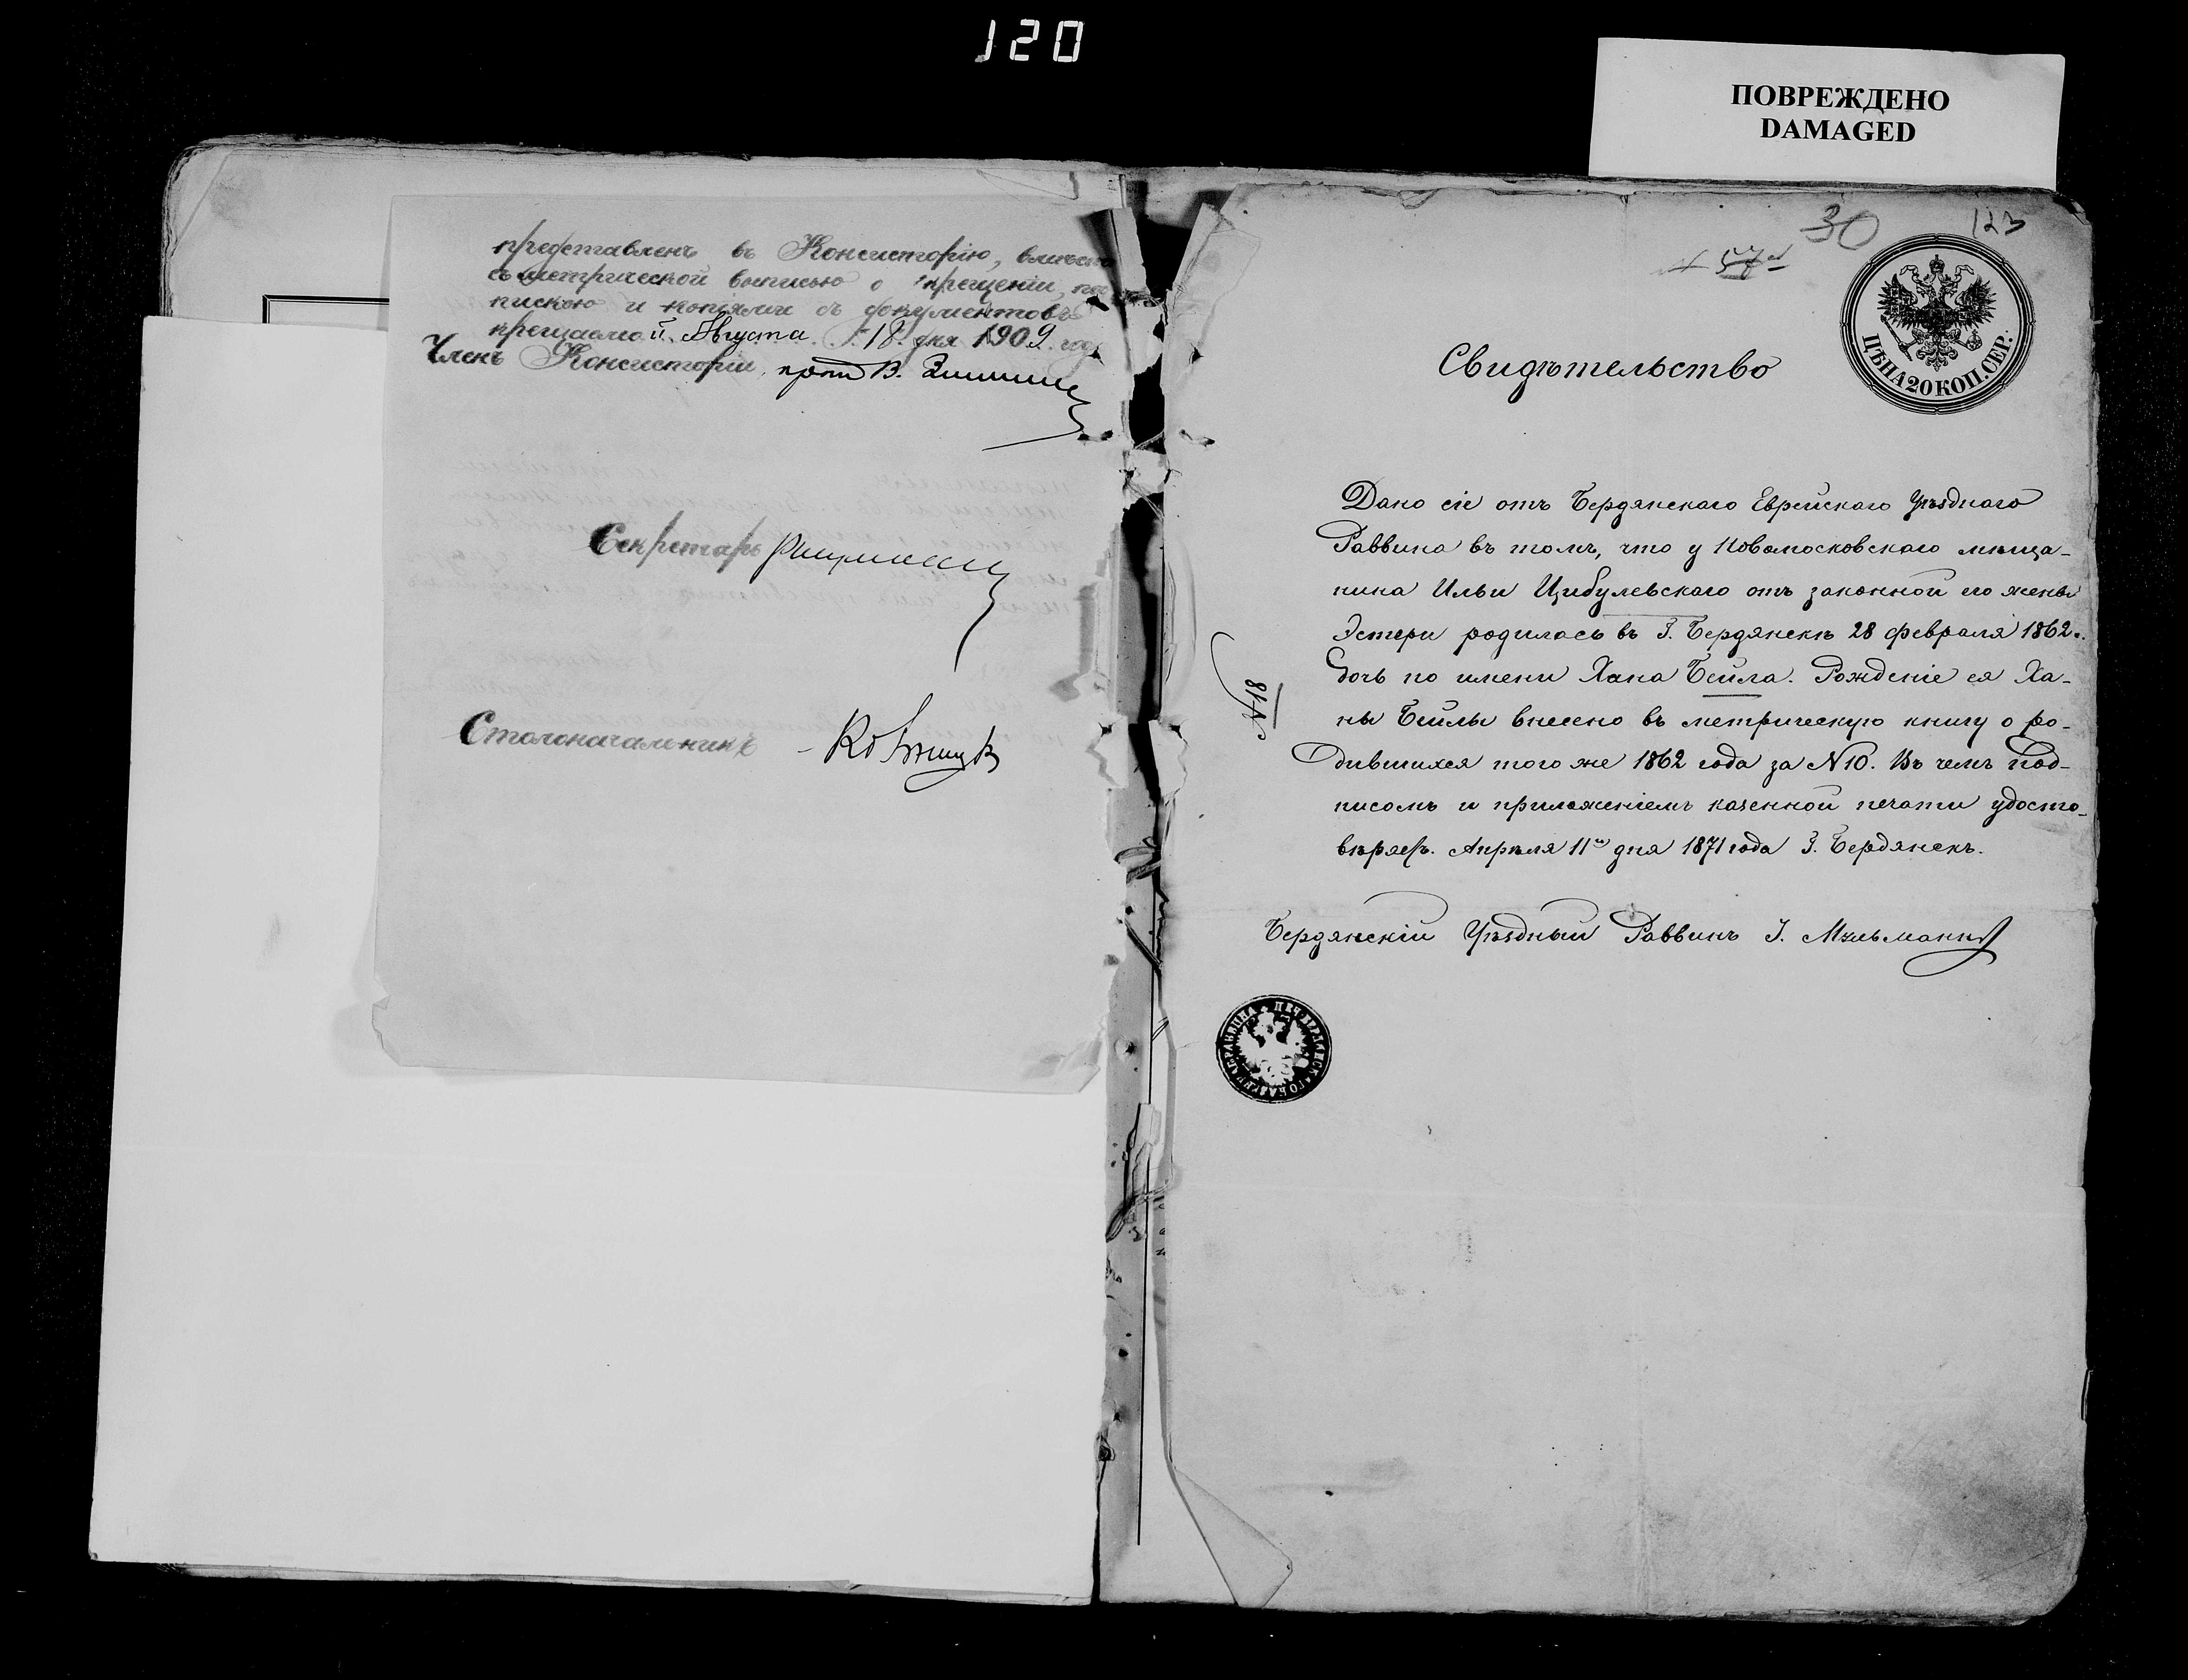 120
ПОВРЕЖДЕНО
DAMAGED
представленъ въ Консисторію, вмѣстѣ
съ метрической выписью о крещеніи, под
пискою и копіями съ документовъ
крещаемой. Августа 18 дня 1909 года
Членъ Консисторіи, прот В.
Секретарь
Столоначальникъ
30
123
№ 57
ЦѢНА 20 КОП. СЕР.
Свидѣтельство
Дано сіе отъ Бердянскаго Еврейскаго Уѣзднаго
Раввина въ томъ, что у Новомосковскаго мѣща-
нина Ильи Цибулевскаго отъ законной его жены
Эстери родилась въ Г. Бердянскѣ 28 февраля 1862 г.
дочь по имени Хана Бейла. Рожденіе ея Ха-
ны Бейлы внесено въ метрическую книгу о ро-
дившихся того же 1862 года за № 10. Въ чемъ под-
писомъ и приложеніемъ казенной печати удосто-
вѣряю. Апрѣля 11го дня 1871 года Г. Бердянскъ.
№ 18
Бердянскій Уѣздный Раввинъ І. Мильманъ